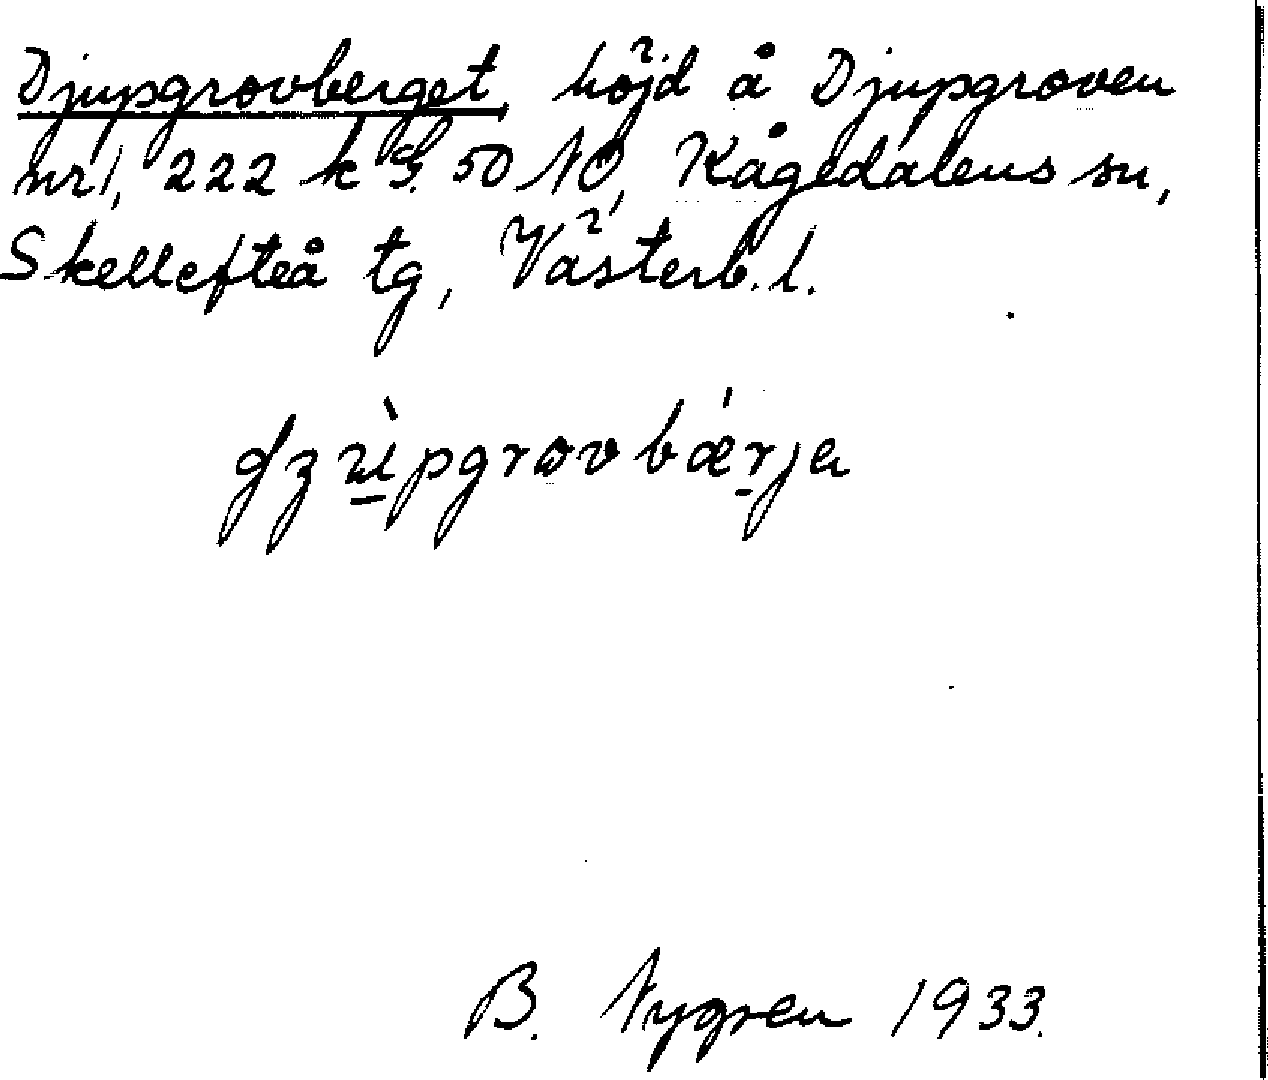 Djupgrovberget, höjd å Djupgroven
nr 1, 222 k G. 50 NO, Kågedalens sn,
Skellefteå tg, Västerb. l.
B. Nygren 1933.